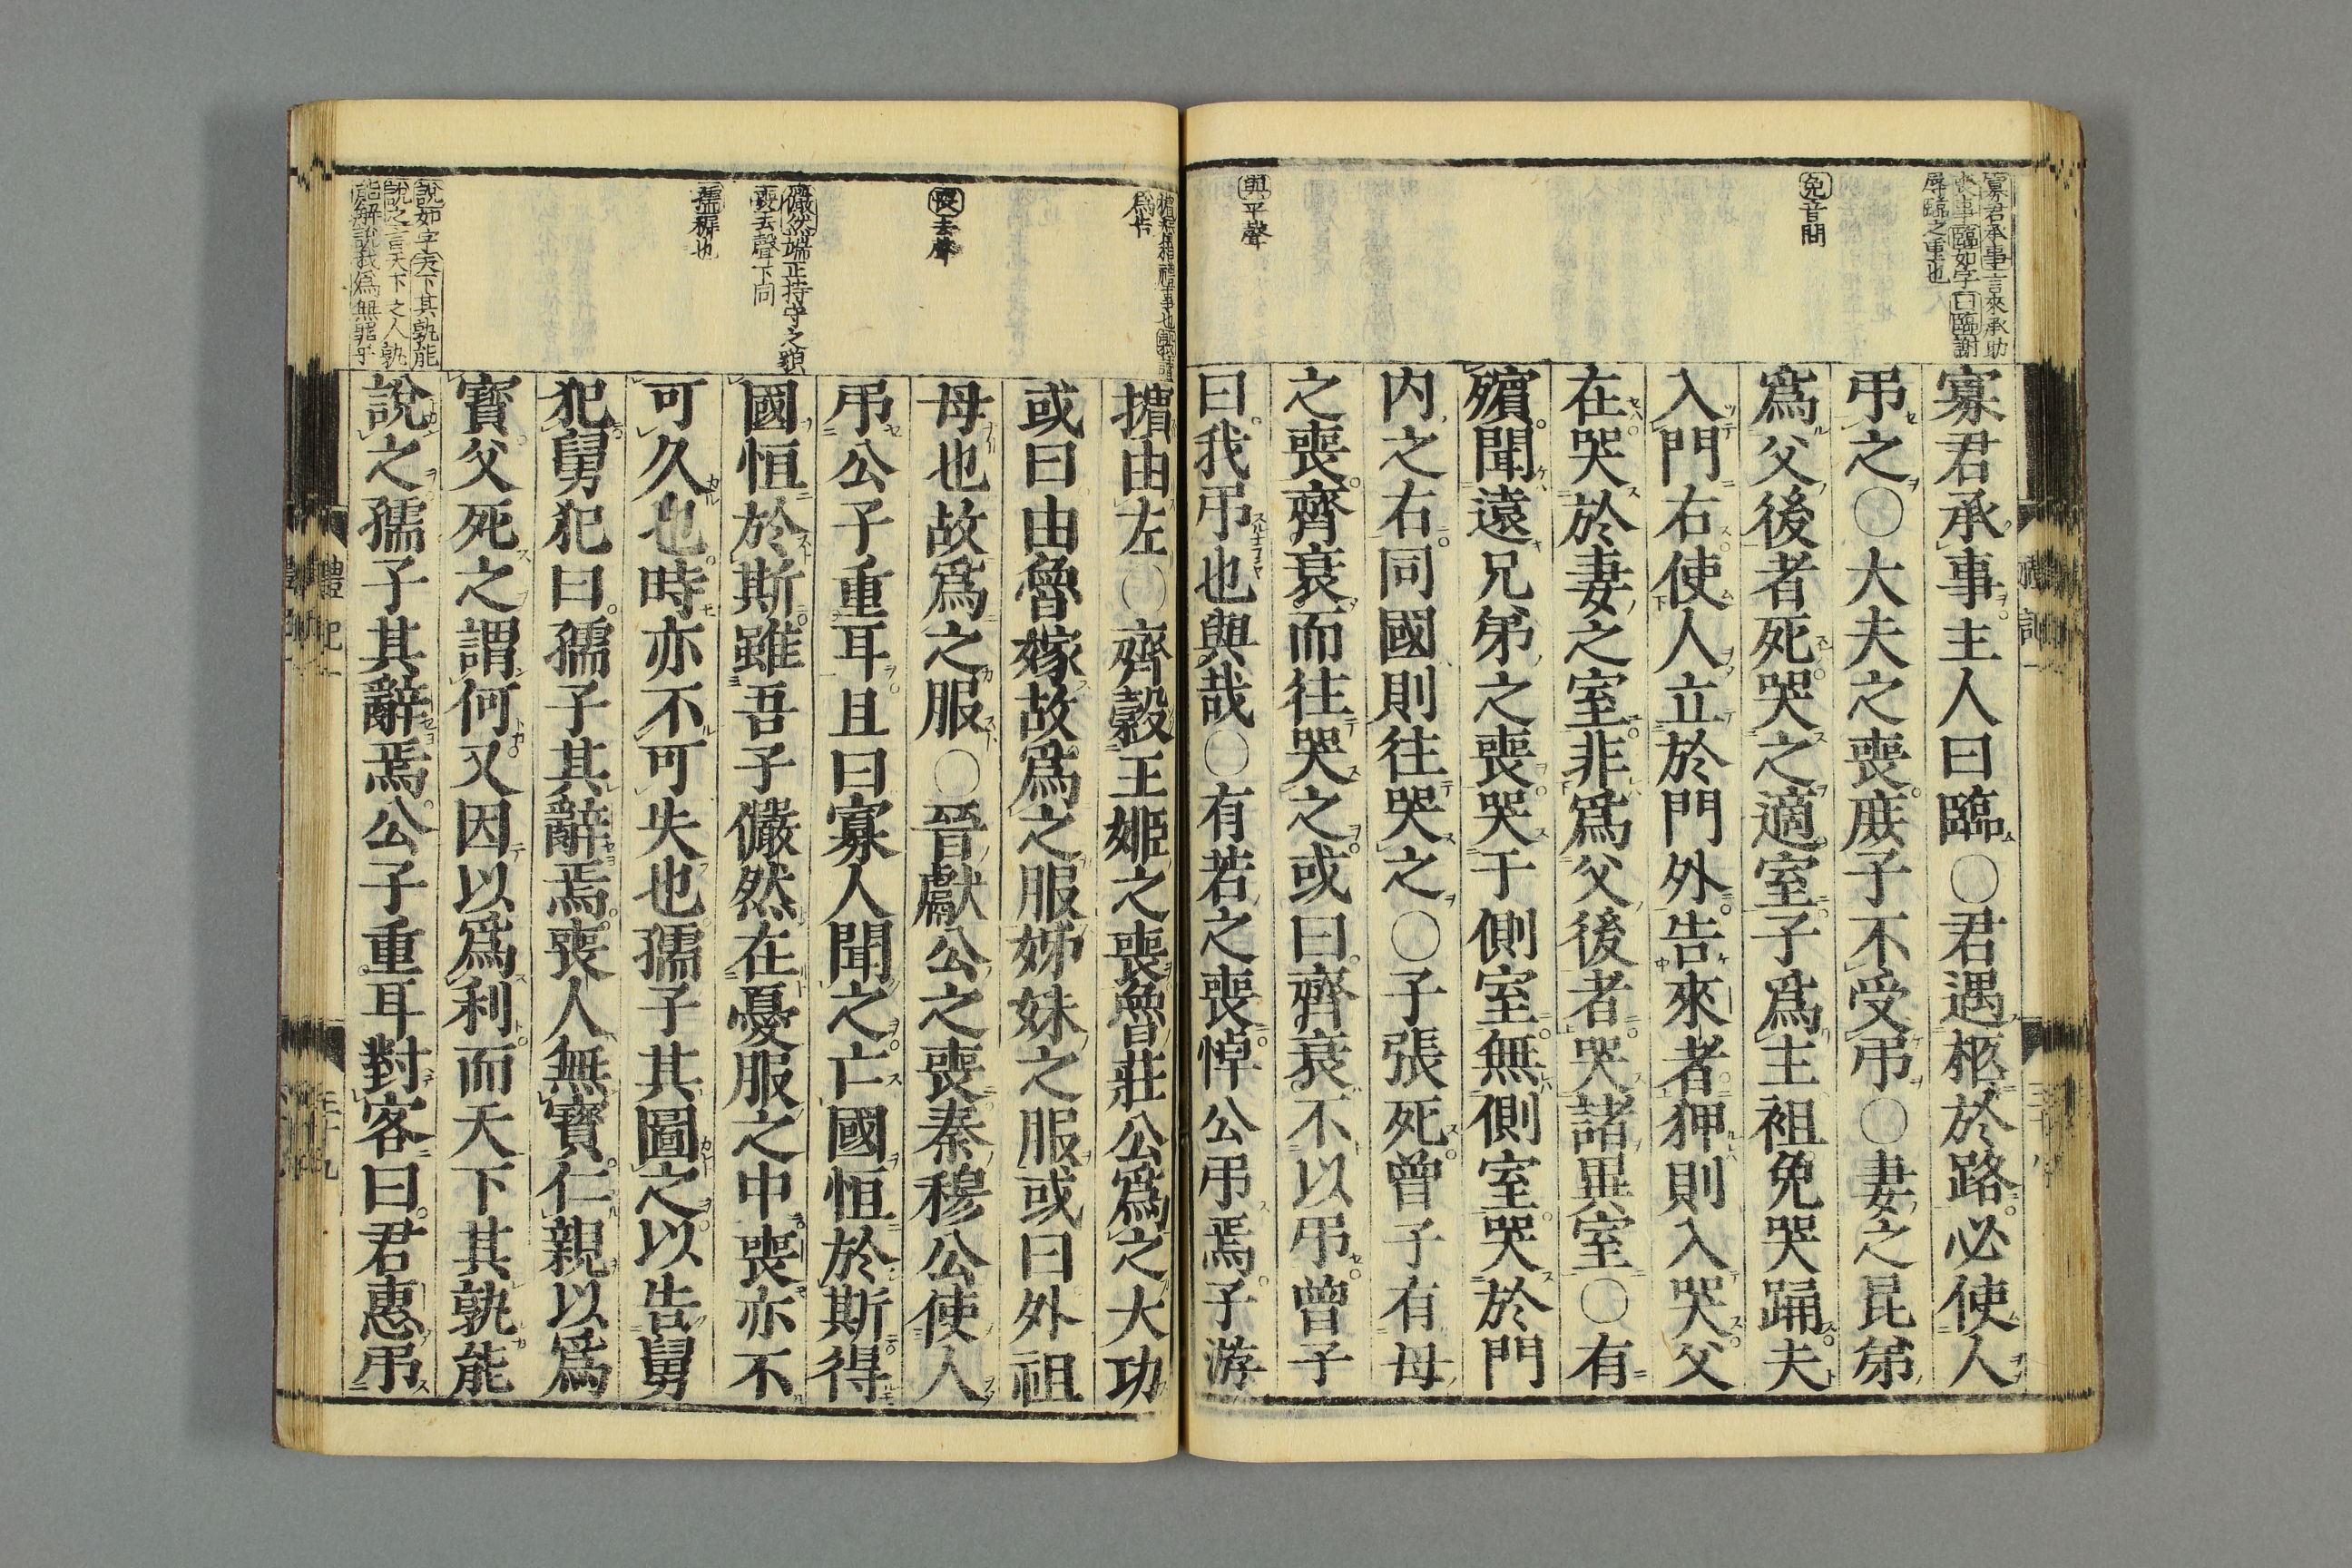 寡君承事言來承助
喪事臨如字曰臨謝
辱臨之重也
免音問
與平聲
寡君承事主人曰臨〇君遇柩於路必使人
弔之〇大夫之喪庶子不受弔〇妻之昆弟
爲父後者死哭之適室子爲主袒免哭踊夫
入門右使人立於門外告來者狎則入哭父
在哭於妻之室非爲父後者哭諸異室〇有
殯聞遠兄弟之喪哭于側室無側室哭於門
内之右同國則往哭之〇子張死曾子有母
之喪齊衰而往哭之或曰齊衰不以弔曾子
曰我弔也與哉〇有若之喪悼公弔焉子游
爲告
喪去聲
儼然端正持守之貌
喪去聲下同
孺穉也
說如字天下其孰能
說之言天下之人孰
能解說我爲無罪乎
擯由左〇齊穀王姬之喪魯莊公爲之大功
或曰由魯嫁故爲之服姊妹之服或曰外祖
母也故爲之服〇晉獻公之喪秦穆公使人
弔公子重耳且曰寡人聞之亡國恒於斯得
國恒於斯雖吾子儼然在憂服之中喪亦不
可久也時亦不可失也孺子其圖之以告舅
犯舅犯曰孺子其辭焉喪人無寶仁親以爲
寶父死之謂何又因以爲利而天下其孰能
說之孺子其辭焉公子重耳對客曰君惠弔
禮記一